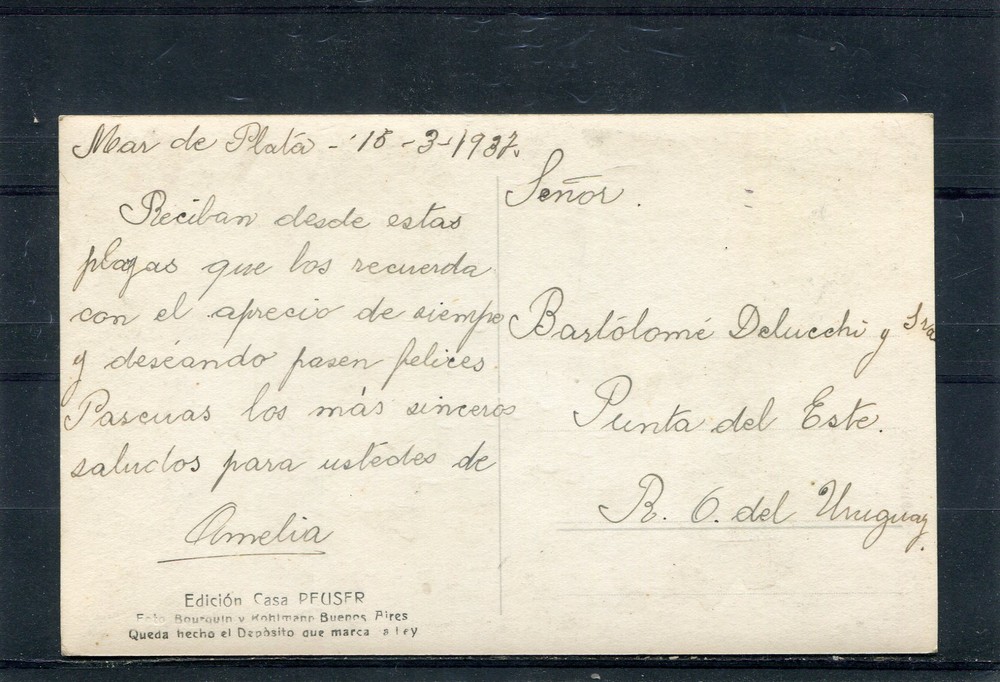 Mar de Platá - 15 - 3 - 1937.
Reciban desde estas
playas que los recuerda
con el aprecio de siempe
y deseando pasen felices
Pascuas los más sinceros
saludos para ustedes de
Amelia
Edición Casa PEUSER
Foto Bourquin y Kohlmann Buenos Aires
Queda hecho el Depòsito que marca la ley
Señor.
Bartólomé Delucchi y Sra
Punta del Este.
R. O. del Uruguay.